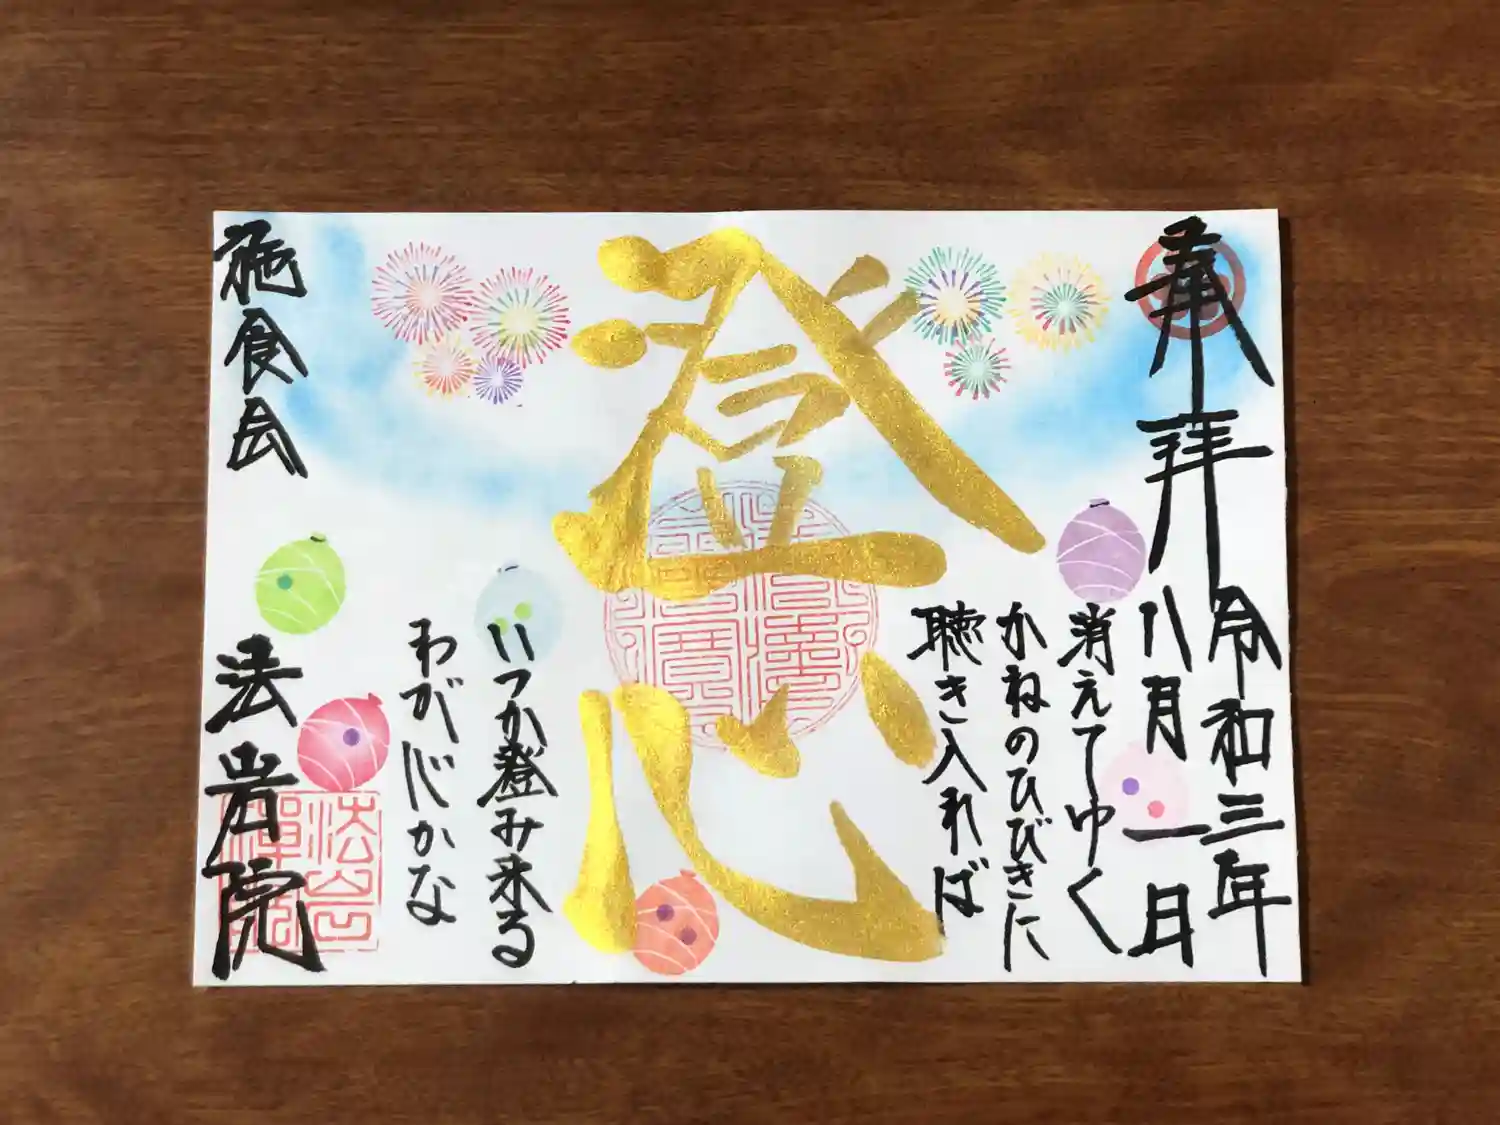 奉拝
令和三年
八月一日
消えてゆく
かねのひびきに
聴き入れば
登心
いつか澄み来る
わが心かな
施食会
法岩院